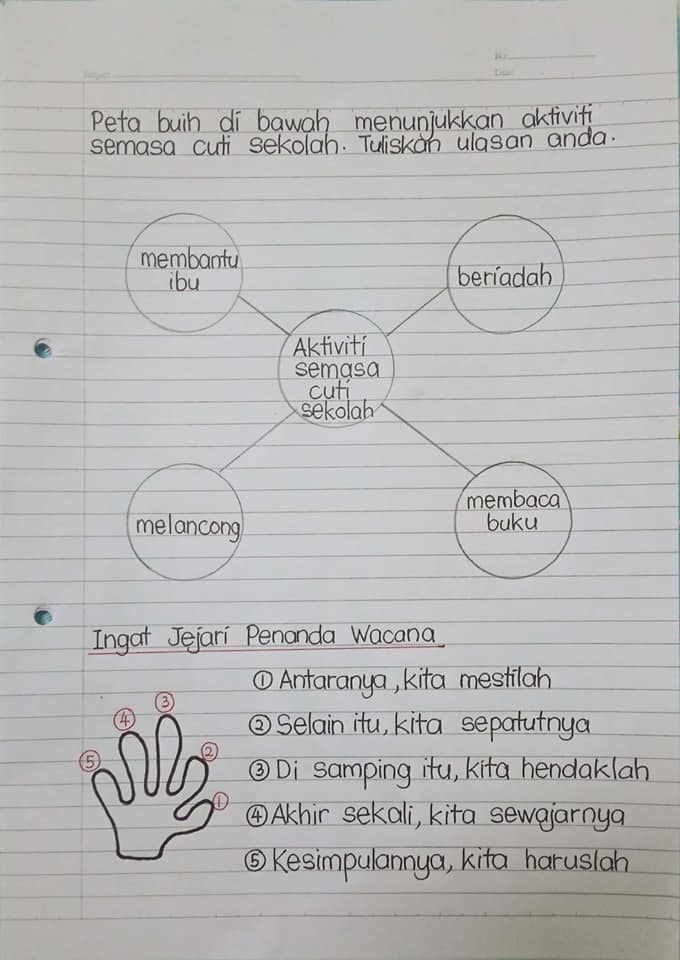 No:
Date:
Peta buih di bawah menunjukkan aktiviti
semasa cuti sekolah. Tuliskan ulasan anda.
membantu
ibu
beriadah
Aktiviti
semasa
cuti
sekolah
melancong
membaca
buku
Ingat Jejari Penanda Wacana
① Antaranya, kita mestilah
② Selain itu, kita sepatutnya
③ Di samping itu, kita hendaklah
④ Akhir sekali, kita sewajarnya
⑤ Kesimpulannya, kita haruslah
⑤
④
③
②
①